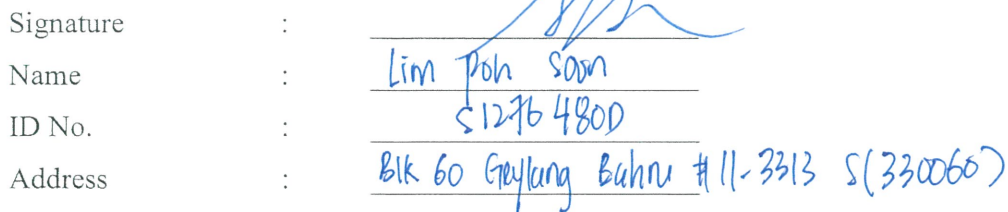 Signature :
Name : Lim Poh Soon
ID No. : S1276480D
Address : Blk 60 Geylang Bahru #11-3313 S(330060)